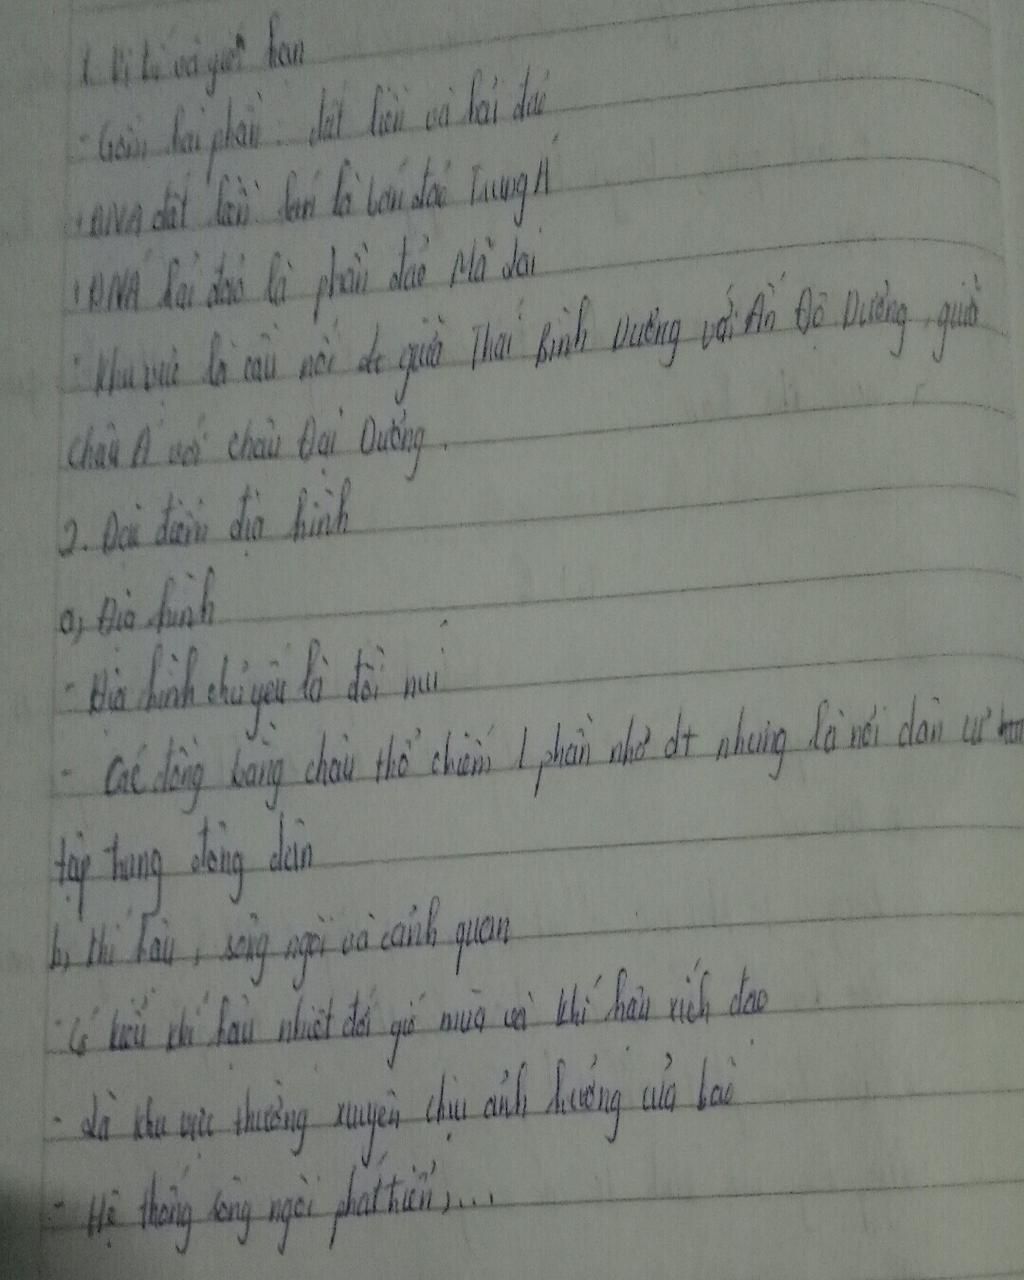 1. Vị trí và giới hạn
- Gồm hai phần: đất liền và hải đảo
+ ĐNA đất liền là bán đảo Trung Á
+ ĐNA hải đảo là phần đảo Mã Lai
- Khu vực là cầu nối giữa Thái Bình Dương với Ấn Độ Dương, giữa
châu Á với châu Đại Dương.
2. Đặc điểm địa hình
a, Địa hình
- Địa hình chủ yếu là đồi núi
- Các đồng bằng châu thổ chiếm 1 phần nhỏ dt nhưng là nơi dân cư
tập trung đông dân
b, Khí hậu, sông ngòi và cảnh quan
- Có kiểu khí hậu nhiệt đới gió mùa và khí hậu xích đạo
- Là khu vực thường xuyên chịu ảnh hưởng của bão
- Hệ thống sông ngòi phát triển,...